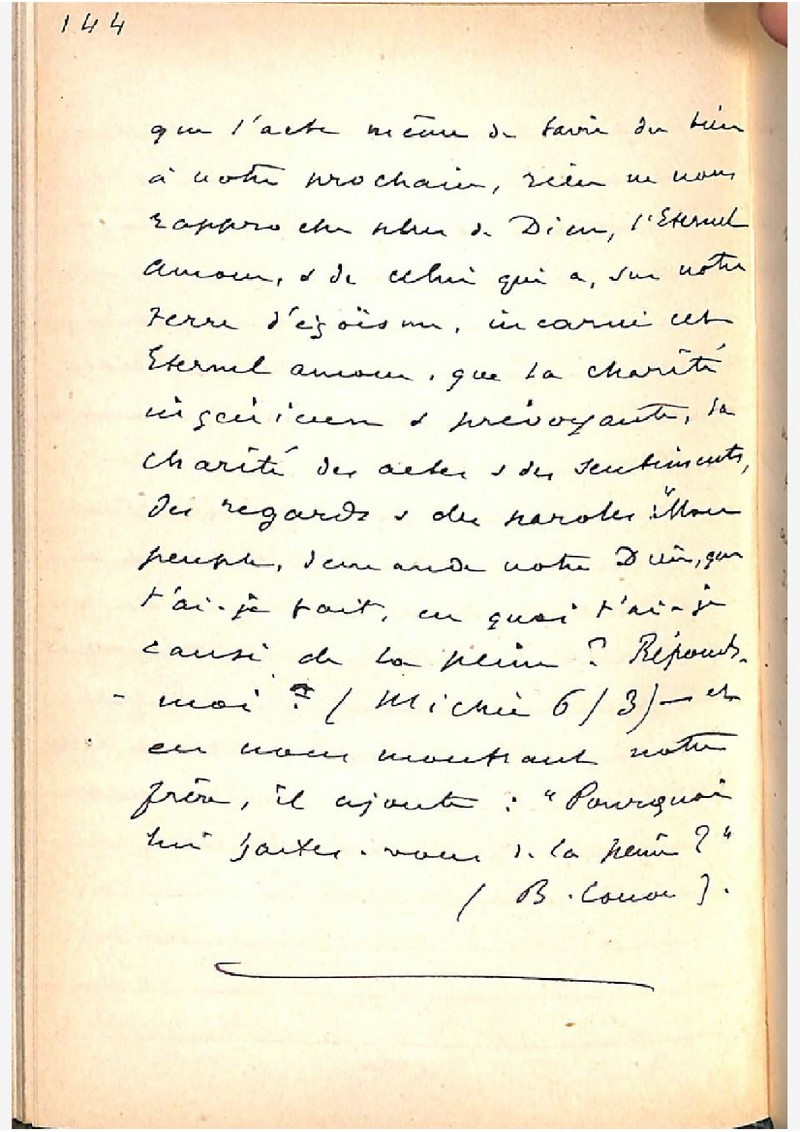 144
que l'acte même de faire du bien
à notre prochain, rien ne nous
rapproche plus de Dieu, l'Eternel
Amour, & de celui qui a, sur notre
terre d'égoïsme, incarné cet
Eternel amour, que la charité
ingénieuse & prévoyante, la
charité des actes & des sentiments,
des regards & des paroles : "Mon
peuple, demande notre Dieu, que
t'ai-je fait, en quoi t'ai-je
causé de la peine ? Réponds-
- moi ? ( Michée 6/3) — et
en nous montrant notre
frère, il ajoute : "Pourquoi
lui faites-vous de la peine ?"
( B. ).